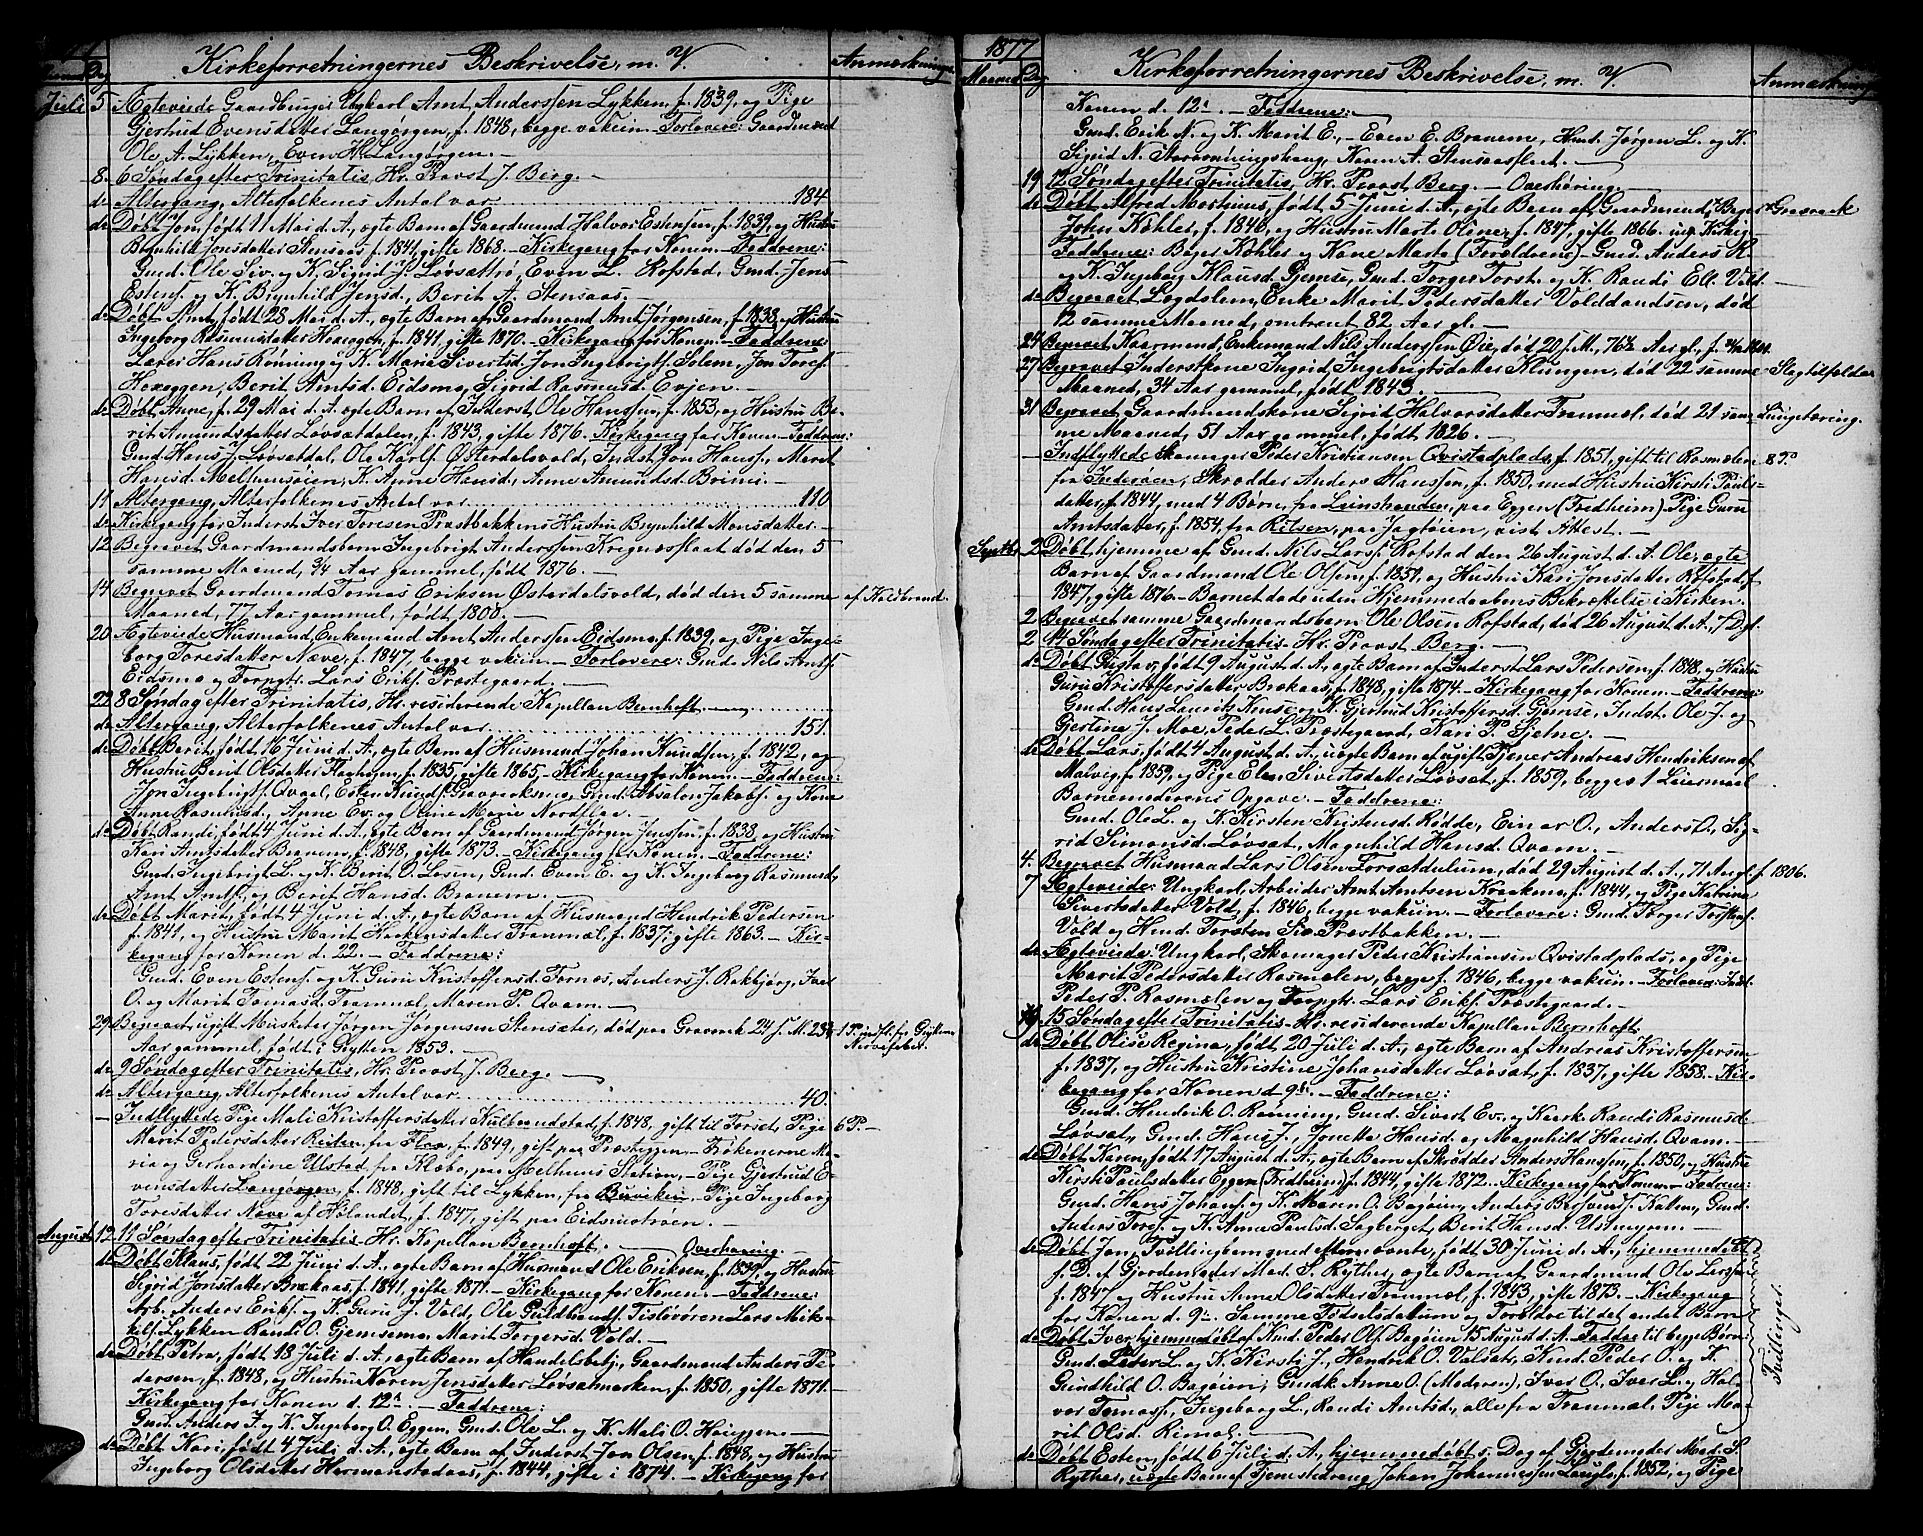 Kirkeforretningernes Beskrivelse, m. V. Anmærkninger
Juli 5 Ægteviede Gaardbruger Ungkarl Arnt Anderssen Lykken, f. 1839, og Pige
Gjertrud Evensdatter Langørgen, f. 1848, begge vakcin. - Forlovere: Gaardmænd
Ole A. Lykken, Even H. Langørgen. -
8. 6 Søndag efter Trinitatis, Hr. Provst J. Berg. -
do Altergang, Alterfolkenes Antal var 184
do Døbt Jon, født 11 Mai d. A., ægte Barn af Gaardmand Halvor Estensen, f. 1839, og Hustru
Brynhild Jonsdatter Stensaas, f. 1841, gifte 1868. - Kirkegang for Konen. - Faddrene:
Gmd. Ole Siv. og K. Sigrid J. Løvsættrø, Even L. Rofstad, Gmd. Jens
Estens. og K. Brynhild Jensd., Berit A. Stensaas. -
do Døbt Arnt, født 28 Mai d. A., ægte Barn af Gaardmand Arnt Jørgensen, f. 1838, og Hustru
Ingeborg Rasmusdatter Hoxeggen, f. 1841, gifte 1870. - Kirkegang for Konen. - Faddrene:
Lærer Hans Rønning og K. Maria Sivertsd. Jon Ingebrigts. Solem, Jon Tores.
Hoxeggen, Berit Arntsd. Eidsmo, Sigrid Rasmusd. Evjen. -
do Døbt Anne, f. 29 Mai d. A., ægte Barn af Inderst Ole Hanssen, f. 1853, og Hustru Be-
rit Amundsdatter Løvsætdalen, f. 1843, gifte 1876. Kirkegang for Konen - Faddrene:
Gmd. Hans J. Løvsætdal, Ole Karls. Østerdalsvold, Indst. Jon Hanss., Marit
Hansd. Melhusmoen, K. Anne Hansd., Anne Amundsd. Brimi. -
11 Altergang, Alterfolkenes Antal var 110
do Kirkegang for Inderst Iver Toresen Præstbakkens Hustru Brynhild Monsdatter. -
12 Begravet Gaardmandsbarn Ingebrigt Anderssen Kregnæsflaat død den 5
samme Maaned, 3/4 Aar gammel, født 1876. -
14 Begravet Gaardmand Tomas Eriksen Østerdalsvold, død den 5 samme af Koldbrand.
Maaned, 77 Aar gammel, født 1800. -
20 Ægteviede Husmand, Enkemand Arnt Anderssen Eidsmo, f. 1839, og Pige Inge-
borg Toresdatter Næve, f. 1847, begge vakcin. - Forlovere: Gmde Nils Arnts.
Eidsmo og Forpgtr. Lars Eriks. Præstegaard. -
22 8 Søndag efter Trinitatis, Hr. residerende Kapellan Bernhoft. -
do Altergang, Alterfolkenes Antal var 151.
do Døbt Berit, født 16 Juni d. A., ægte Barn af Husmand Johan Knudsen, f. 1842, og
Hustru Berit Olsdatter Flaahagen, f. 1835, gifte 1865. - Kirkegang for Konen. - Faddrene:
Jon Ingebrigts. Qvaal, Esten Knuds. Gravraaksmo, Gmd. Absalon Jakobs. og Kone
Anne Rasmusd., Anne Ev. og Oline Marie Nordflaa. -
do Døbt Randi, født 4 Juni d. A., ægte Barn af Gaardmand Jørgen Jenssen, f. 1838, og Hustru
Kari Arntsdatter Bravem, f. 1848, gifte 1873. - Kirkegang for Konen. - Faddrene:
Gmd. Ingebrigt L. og K. Berit O. Losen, Gmd. Even E. og K. Ingeborg Rasmusd.,
Arnt Arnts. og Berit Hansd. Bravem. -
do Døbt Marit, født 4 Juni d. A., ægte Barn af Husmand Hendrik Pedersen
f. 1841, og Hustru Marit Haakensdatter Tranmæl, f. 1837, gifte 1863. - Kir-
kegang for Konen d. 22. - Faddrene:
Gmd. Even Estens. og K. Guru Kristoffersd. Fornæs, Anders J. Rakbjørg, Iver
O. og Marit Tomasd. Tranmæl, Maren P. Qvam. -
29 Begravet ugift Musketer Jørgen Jørgensen Stensæter, død paa Gravraak 24 f. M. 23 3/4
Aar gammel, født i Grytten 1853. - Nervefeber.
do 9 Søndag efter Trinitatis, Hr. Provst J. Berg. -
do Altergang, Alterfolkenes Antal var 40.
- Indflyttede Pige Mali Kristoffersdatter Kulbrandstad, f. 1848, gift til Forset, Pige 6 P. -
Marit Pedersdatter Reiten, fra Flaa, f. 1849, gift paa Præsteggen. - Frøkenerne Ma-
ria og Gerhardine Ulstad, fra Klæbo, paa Melhuus Station. - Pige Gjertrud E-
vensdatter Langørgen, f. 1848, gift til Lykken, fra Buviken. - Pige Ingeborg
Toresdatter Næve af Hølandet, f. 1847, gift paa Eidsmotrøen. -
August 12 11 Søndag efter Trinitatis, Hr. Kapellan Bernhoft. - Overhøring. -
do Døbt Klaus, født 22 Juni d. A., ægte Barn af Husmand Ole Eriksen, f. 1839, og Hustru
Sigrid Jonsdatter Brækaas, f. 1841, gifte 1871. - Kirkegang for Konen. - Faddrene:
Arb. Anders Eriks. og K. Guru J. Vold, Ole Guldbrands. Tislorøren, Lars Mik-
kels. Lykken, Randi O. Gjemsemo, Marit Torgersd. Vold. -
do Døbt Petra, født 18 Juli d. A., ægte Barn af Handelsbetj., Gaardmand Anders Pe-
dersen, f. 1848, og Hustru Karen Jensdatter Løvsetmarken, f. 1850, gifte 1871. -
Kirkegang for Konen d. 12te. - Faddrene:
Gmd. Anders I. og K. Ingeborg O. Eggen, Gmd. Ole L. og K. Mali O. Hougen. -
do Døbt Kari, født 4 Juli d. A., ægte Barn af Inderst Jon Olsen, f. 1848, og Hustru
Ingeborg Olsdatter Hermanstadaas, f. 1844, gifte i 1874. - Kirkegang for
1877
Maaned Dag Kirkeforretningernes Beskrivelse, m. V. Anmærkning
Konen d. 12te. - Faddrene:
Gmd. Erik N. og K. Marit E., Even E. Bravem, Hmd. Jørgen L. og K.
Sigrid N. Skraamningshaug, Karen A. Stensaasflaat. -
19 12 Søndag efter Trinitatis, Hr. Provst Berg. - Overhøring. -
do Døbt Alfred Martinus, født 5 Juni d. A., ægte Barn af Gaardmand, Bager Gravraak
John Køhler, f. 1846, og Hustru Marta Oline, f. 1847, gifte 1866.
Faddrene: Bager Køhler og Kone Marta (Forældrene) - Gmd. Anders K.
og K. Ingeborg Klausd. Gjemse, Gmd. Torger Torst. og K. Randi Ell. Vold. -
do Begravet Lægdslem, Enke Marit Pedersdatter Volddaudsen, død
12 samme Maaned, omtrent 82 Aar gl. -
24 Begravet Kaarmand, Enkemand Nils Anderssen Øie, død 20 f. M., 76 1/2 Aar gl.
27 Begravet Inderstkone Ingrid Ingebrigtsdatter Klungen, død 22 samme Slagtilfælde
Maaned, 34 Aar gammel, født 1843. -
31 Begravet Gaardmandskone Sigrid Halvorsdatter Tranmæl, død 21 sam- Lungetæring.
me Maaned, 51 Aar gammel, født 1826. -
- Indflyttede Skomager Peder Kristiansen Qvistadplads, f. 1851, gift til Rosmælen 8 P.
fra Inderøen, Skrædder Anders Hanssen, f. 1850, med Hustru Kirsti Pauls-
datter, f. 1844, med 4 Børn, fra Leinstranden, paa Eggen (Fredheim) Pige Guru
Arntsdatter, f. 1854, fra Rissen, paa Jagtøien, vist Attest. -
Septbr. 2 Døbt hjemme af Gmd. Nils Lars. Rofstad den 26 August d. A. Ole, ægte
Barn af Gaardmand Ole Olsen, f. 1851, og Hustru Kari Jonsdatter Rofstad, f.
1847, gifte 1876. - Barnet døde uden Hjemmedaabens Bekræftelse i Kirken.
2 Begravet samme Gaardmandsbarn Ole Olsen Rofstad, død 26 August d. A., 7 D. gl.
2 14 Søndag efter Trinitatis. Hr. Provst Berg. -
do Døbt Gustav, født 9 August d. A., ægte Barn af Inderst Lars Pedersen, f. 1848, og Hustru
Guru Kristoffersdatter Brækaas, f. 1848, gifte 1874. - Kirkegang for Konen. - Faddrene:
Gmd. Hans Laurits Knuds. og K. Gjertrud Kristoffersd. Gjemse, Indst. Ole J. og
Gjertine J. Moe, Peder L. Præstegaard, Kari P. Gjetne. -
do Døbt Lars, født 4 August d. A., uægte Barn af ugift Tjener Andreas Hendriksen af
Malvig, f. 1859, og Pige Elen Sivertsdatter Løvset, f. 1859, begges 1 Leiermaal
Barnemoderens Opgave. - Faddrene:
Gmd. Ole L. og K. Kirsten Kristensd. Rødde, Einar O., Anders O., Sig-
rid Simonsd. Løvset, Magnhild Hansd. Qvam. -
4. Begravet Husmand Lars Olsen Loreadalum, død 29 August d. A., 71 Aar gl. f. 1806.
7 Ægteviede: Ungkarl, Arbeider Arnt Arntsen Kraakmo, f. 1844, og Pige Katrina
Sivertsdatter Vold, f. 1846, begge vakcin. - Forlovere: Gmd. Torger Torst.
Vold og Hmd. Torsten Siv. Præstbakken. -
do Ægteviede: Ungkarl, Skomager Peder Kristiansen Qvistadplads, og Pige
Marit Pedersdatter Rosmælen, begge f. 1846, begge vakcin. - Forlovere: Indst.
Peder P. Rosmælen og Forpgtr. Lars Eriks. Præstegaard. -
9 15 Søndag efter Trinitatis - Hr. residerende Kapellan Bernhoft.
do Døbt Olise Regina, født 20 Juli d. A., ægte Barn af Andreas Kristoffersen
f. 1837, og Hustru Kristine Johansdatter Løvset, f. 1837, gifte 1858. - Kir-
kegang for Konen d. 9de. - Faddrene:
Gmd. Hendrik O. Rønning, Gmd. Sivert Ev. og Kaark. Randi Rasmusd.
Løvset, Gmd. Hans J., Jonetta Hansd. og Magnhild Hansd. Qvam. -
do Døbt Karen, født 17 August d. A., ægte Barn af Skrædder Anders Hanssen, f. 1850, og Hustru
Kirsti Paulsdatter Eggen (Fredheim) f. 1844, gifte 1872. Kirkegang for Konen. - Faddrene:
Gmd. Hans Johans. og K. Maren O. Bagøien, Anders Bersvends. Kallem, Gmd.
Anders Tores. og K. Anne Paulsd. Sagberget, Berit Hansd. Ustmyren. -
do Døbt Jon, Tvillingbarn med efternævnte, født 30 Juni d. A., hjemmedøbt
s. D. af Gjordemoder Mad. S. Ryther, ægte Barn af Gaardmand Ole Larssen
f. 1847 og Hustru Anne Olsdatter Tranmæl, f. 1843, gifte 1873. - Kirkegang
for Konen d. 9de. Samme Fødselsdatum og Forældre til det andet Barn
do Døbt Iver, hjemmedøbt af Kmd. Peder Ols. Bagøien 15 August d. A. Faddre til begge Børn: Tvillinger.
Gmd. Peder L. og K. Kirsti J., Hendrik O. Valset, Kmd. Peder O. og K.
Gundhild O. Bagøien, Gmdk. Anne O. (Moderen), Iver O., Iver L. og Hal-
vor Tomass., Ingeborg L., Randi Arntsd., alle fra Tranmæl, Pige Ma-
rit Olsd. Rimol. -
do Døbt Esten, født 6 Juli d. A., hjemmedøbt s. Dag af Gjordemoder Mad. S.
Ryther, uægte Barn af Tjenestedreng Johan Johannessen Laugle, f. 1852, og Pige